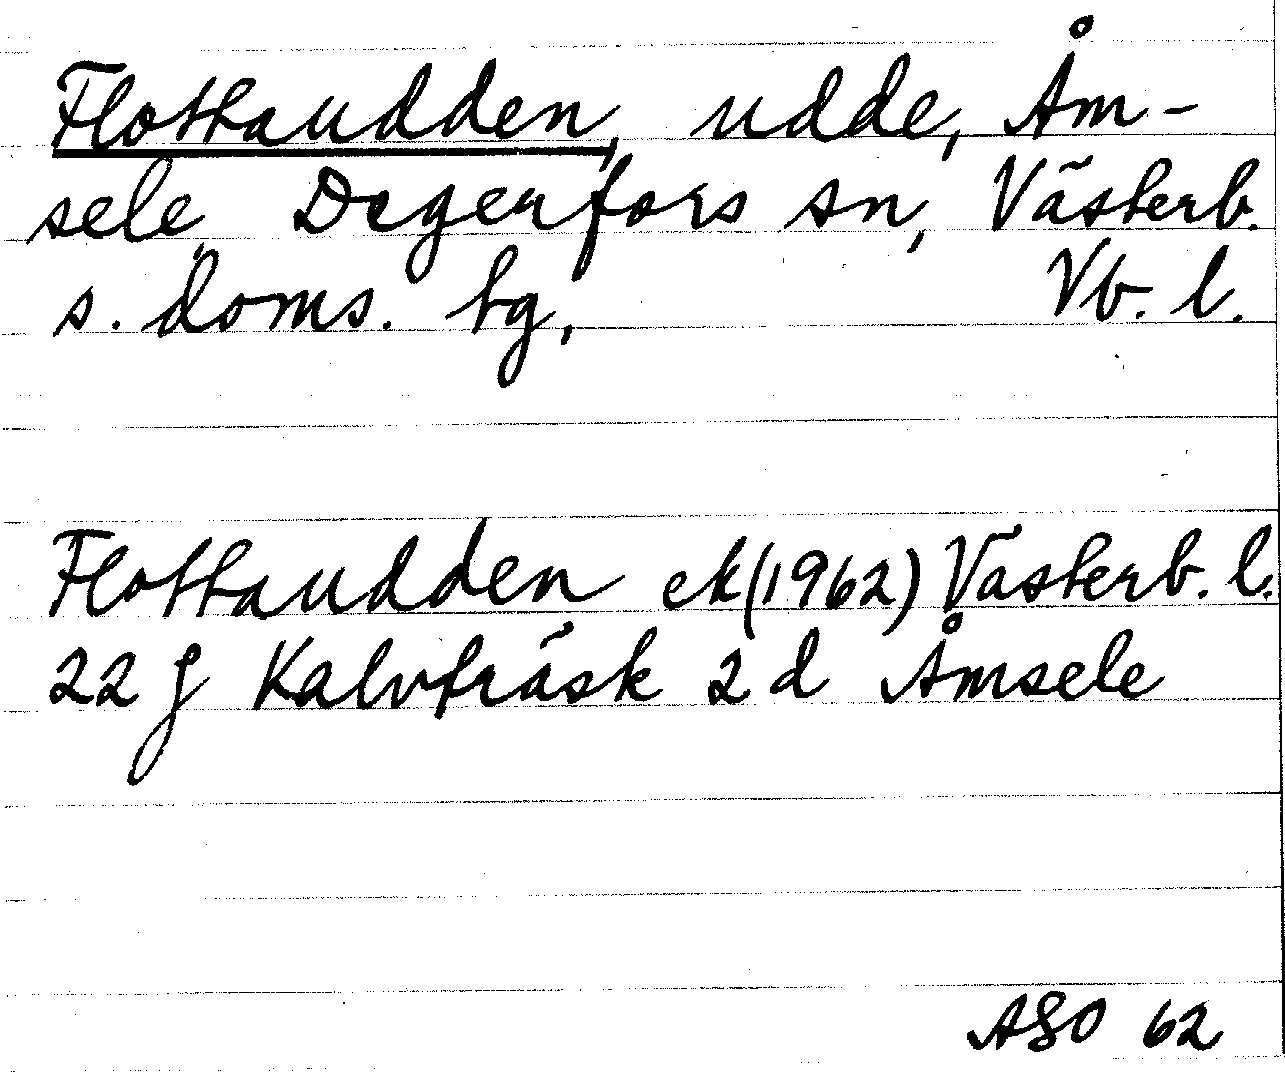 Flottaudden, udde, Åm-
sele, Degerfors sn, Västerb.
s. doms. tg, Vb. l.
Flottaudden ek (1962) Västerb. l.
22 J Kalvträsk 2 d Åmsele
ASO 62